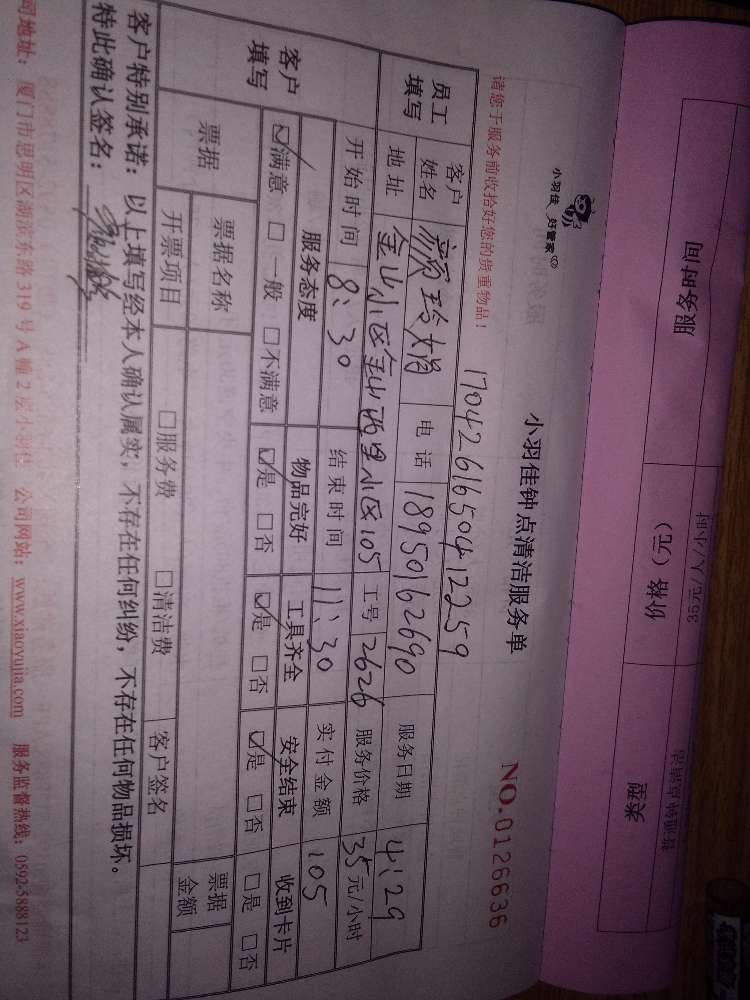 服务时间
价格（元）
类型
35元/人/小时
小羽佳 好管家
小羽佳钟点清洁服务单
NO.0126636
请您于服务前收拾好您的贵重物品！
1704261650412259
员工填写
客户姓名 颜玲娟 电话 18950162690 服务日期 4.29
地址 金山小区金山西里小区105 工号 2626 服务价格 35元/小时
客户填写
开始时间 8:30 结束时间 11:30 实付金额 105
服务态度 物品完好 工具齐全 安全结束 收到卡片
☑满意 □一般 □不满意 ☑是 □否 ☑是 □否 ☑是 □否 □是 □否
票据 票据名称 票据金额
开票项目 □服务费 □清洁费 客户签名
客户特别承诺：以上填写经本人确认属实，不存在任何纠纷，不存在任何物品损坏。
特此确认签名：
司地址：厦门市思明区湖滨东路319号A幢2层小羽佳 公司网站：www.xiaoyujia.com 服务监督热线：0592-5888123